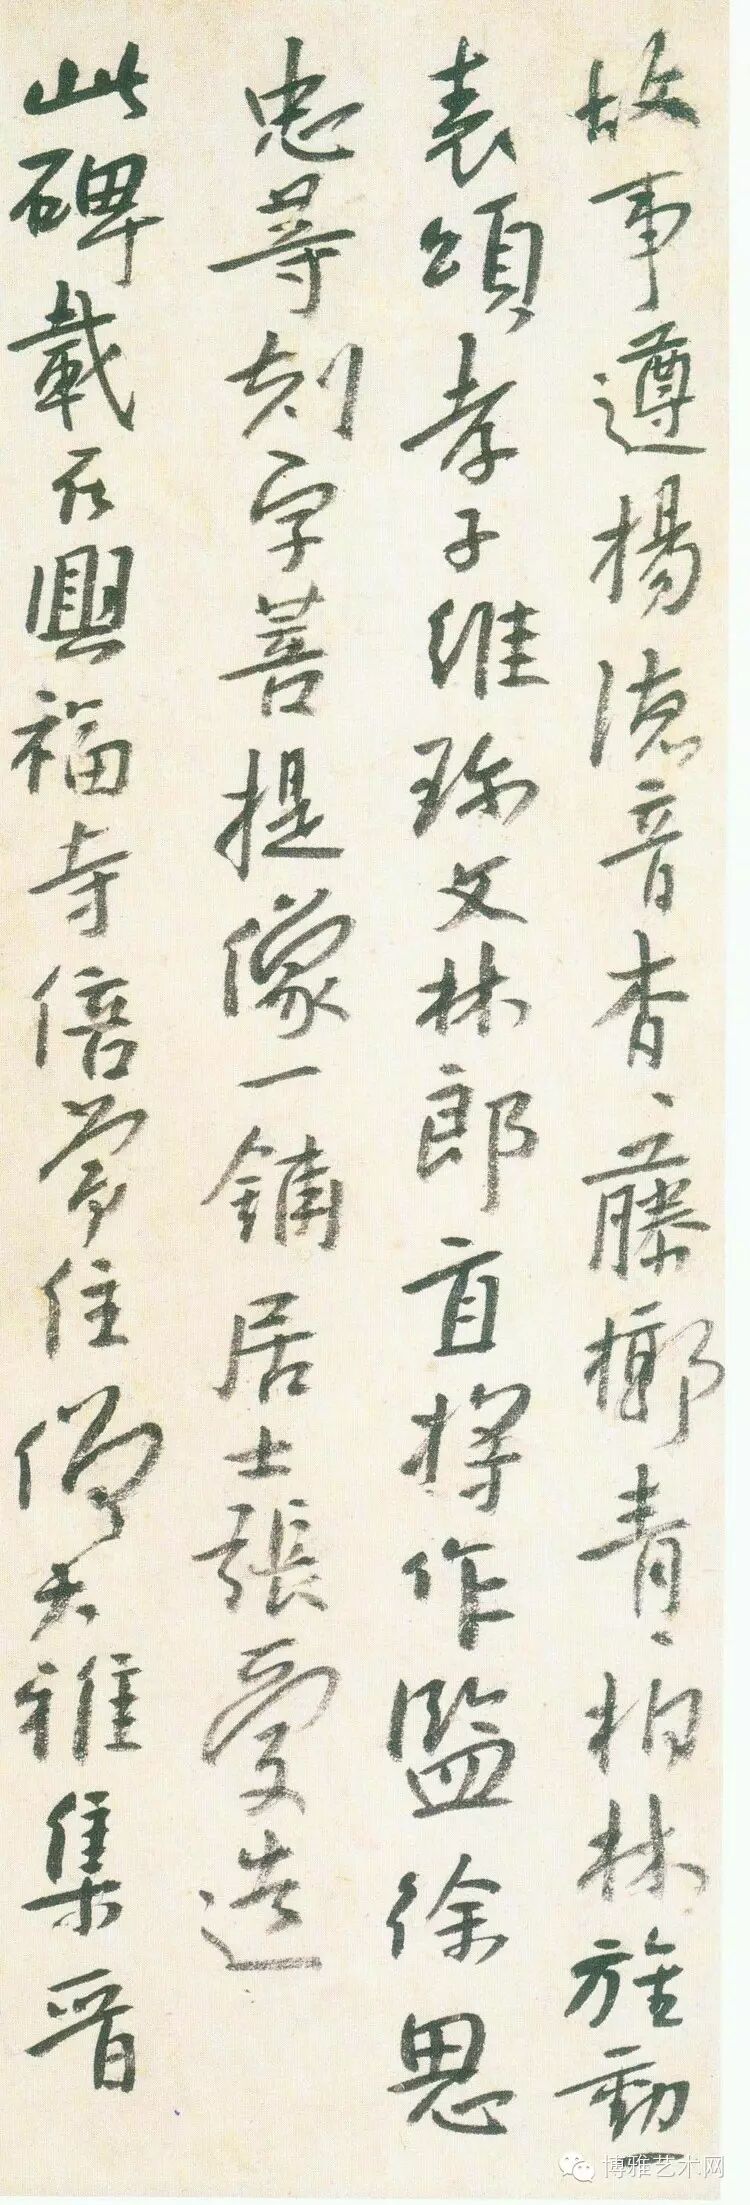 故事遵楊德音杳、藤槨青、柏林旌勳
表頌孝子維珎文林郎直將作監徐思
忠等刻字菩提像一鋪居士張愛造
此碑載在興福寺倍常住僧大雅集晉
博雅艺术网